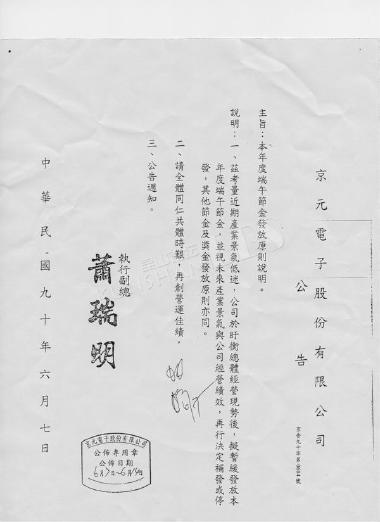 京元電子股份有限公司
公告
主旨：本年度端午節金發放原則說明。
說明：一、茲考量近期產業景氣低迷，公司於盱衡總體經營現勢後，擬暫緩發放本
年度端午節金，並視未來產業景氣與公司經營績效，再行決定補發或停
發，其他節金及獎金發放原則亦同。
二、請全體同仁共體時艱，再創營運佳績，
三、公告通知。
執行副總
蕭瑞明
京元電子股份有限公司
公佈專用章
公佈日期
中華民國九十年六月七日